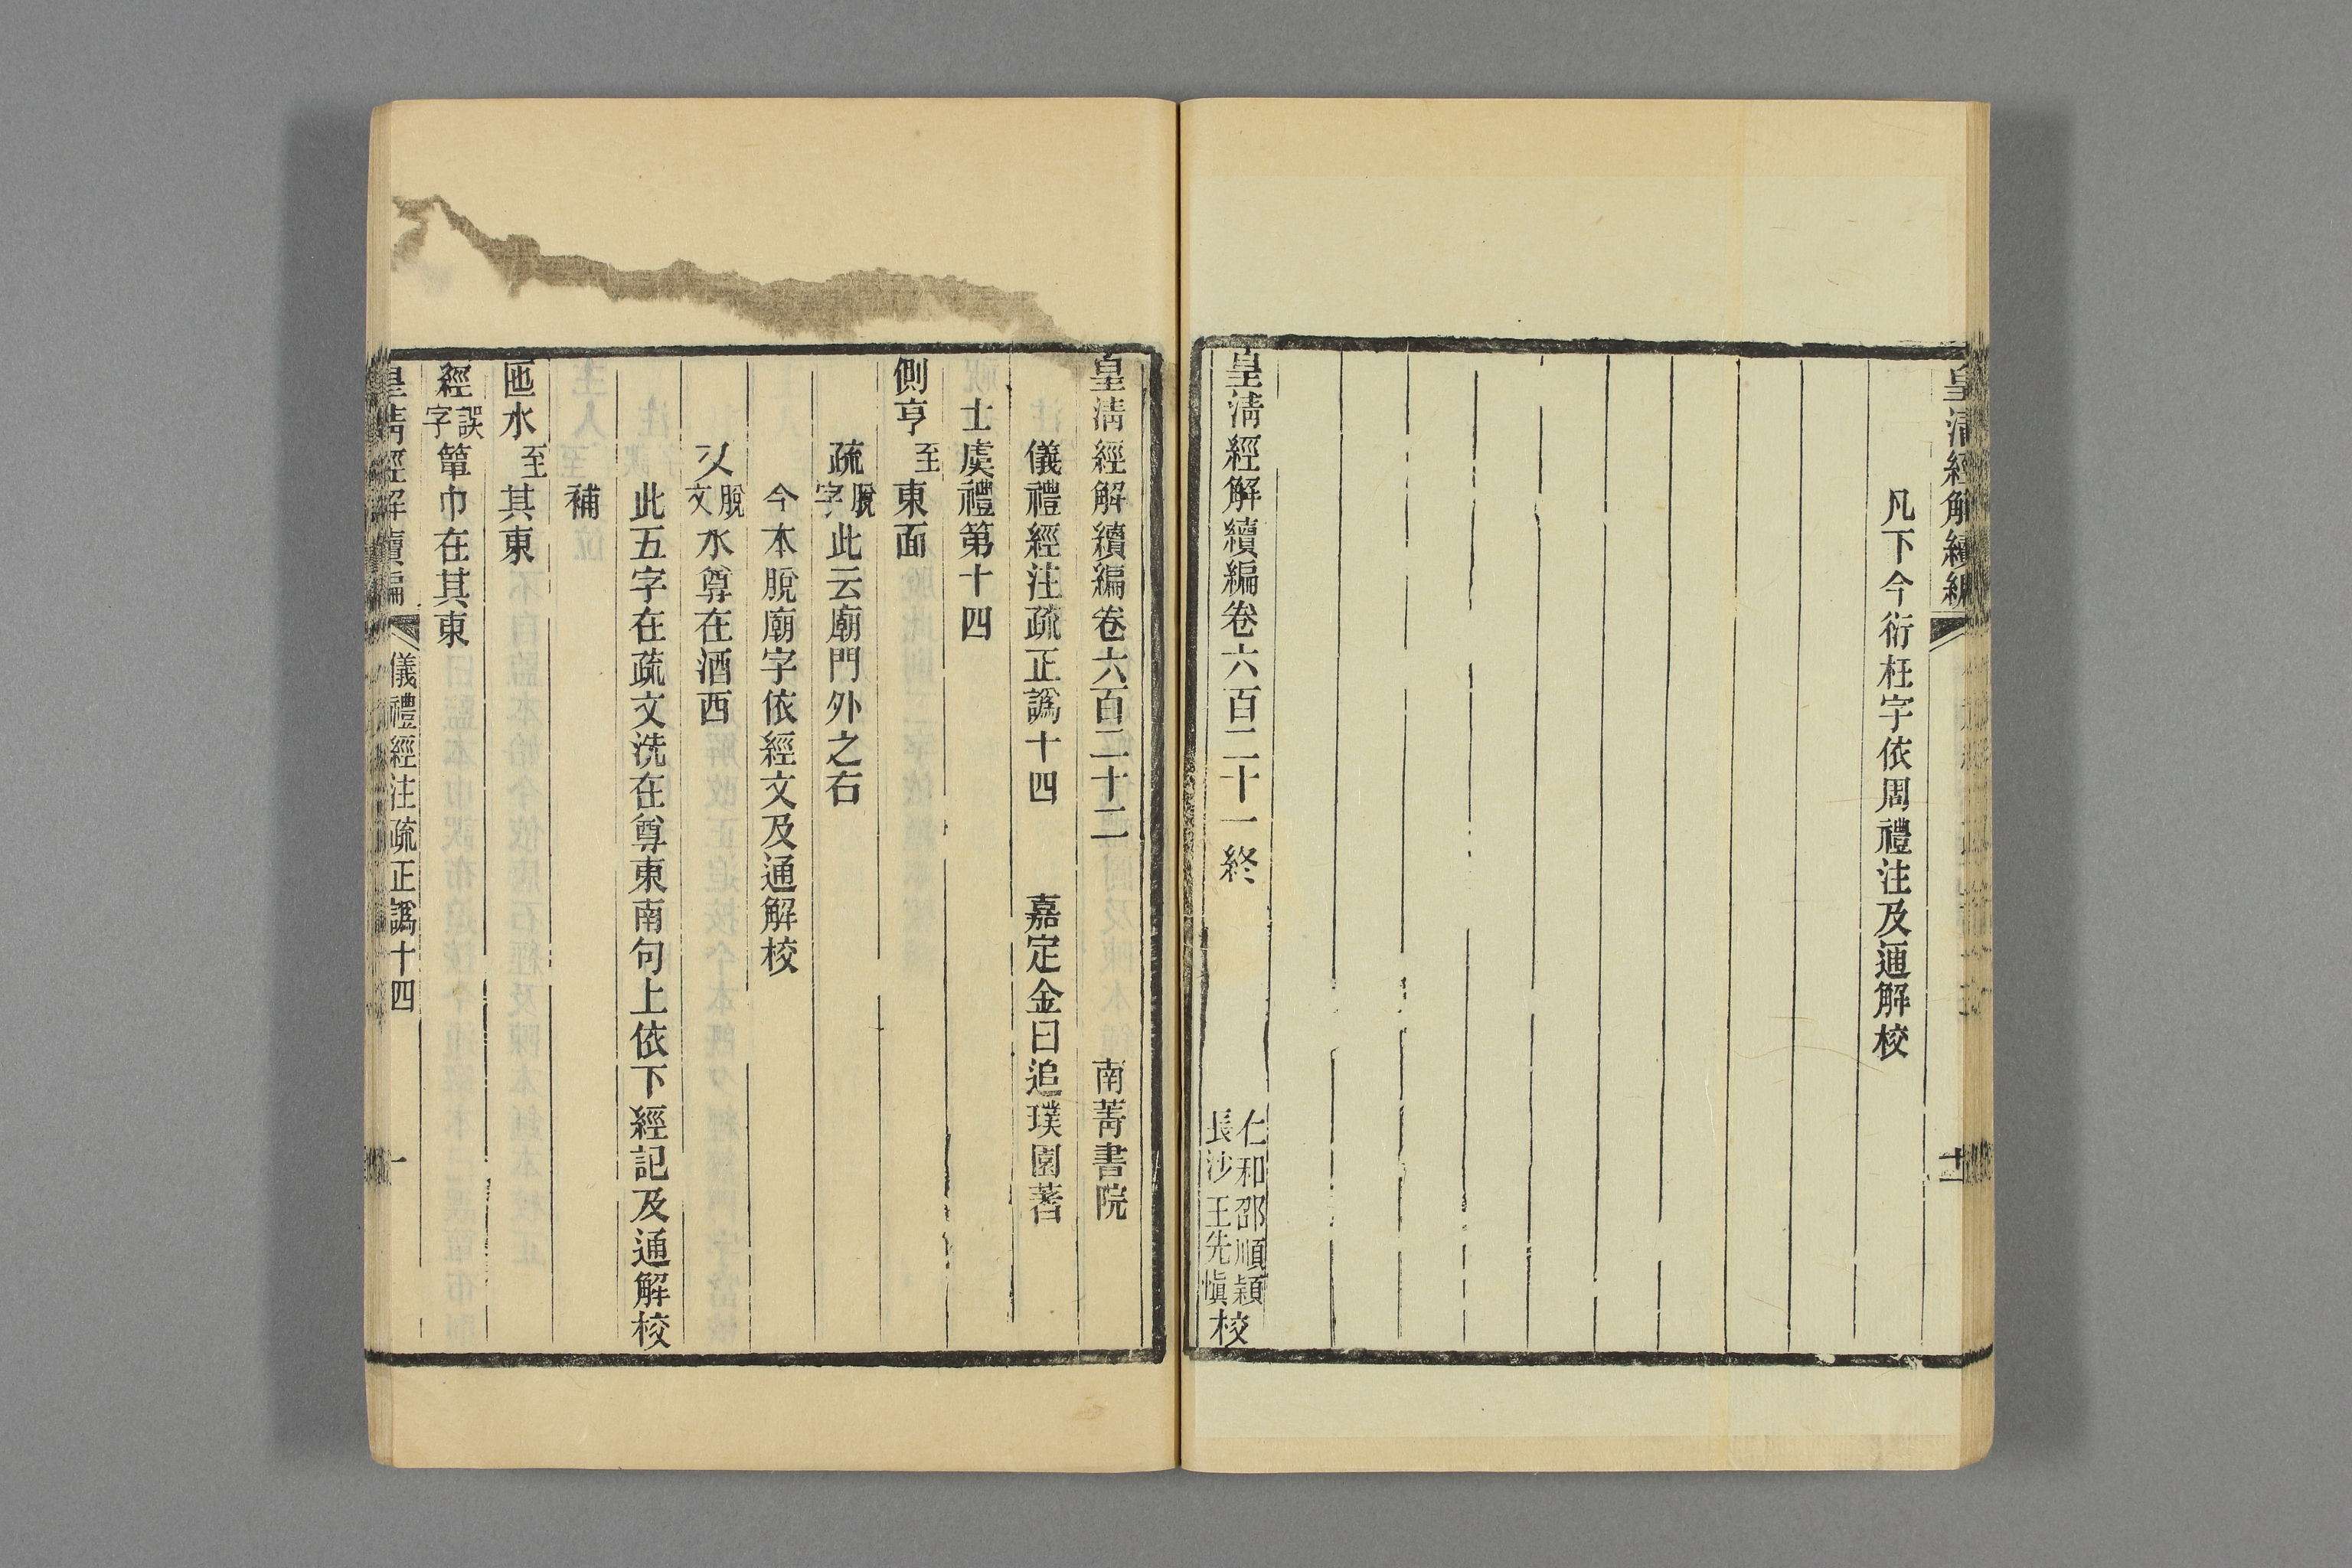 皇清經解續編
十二
凡下今衍枉字依周禮注及通解校
皇清經解續編卷六百二十一終
仁和邵順穎
長沙王先愼
校
皇清經解續編卷六百二十二
南菁書院
儀禮經注疏正譌十四
嘉定金曰追璞園著
士虞禮第十四
側亨至東面
疏脫字此云廟門外之右
今本脫廟字依經文及通解校
又脫文水尊在酒西
此五字在疏文洗在尊東南句上依下經記及通解校
補
匜水至其東
經誤字簞巾在其東
皇清經解續編
儀禮經注疏正譌十四
一